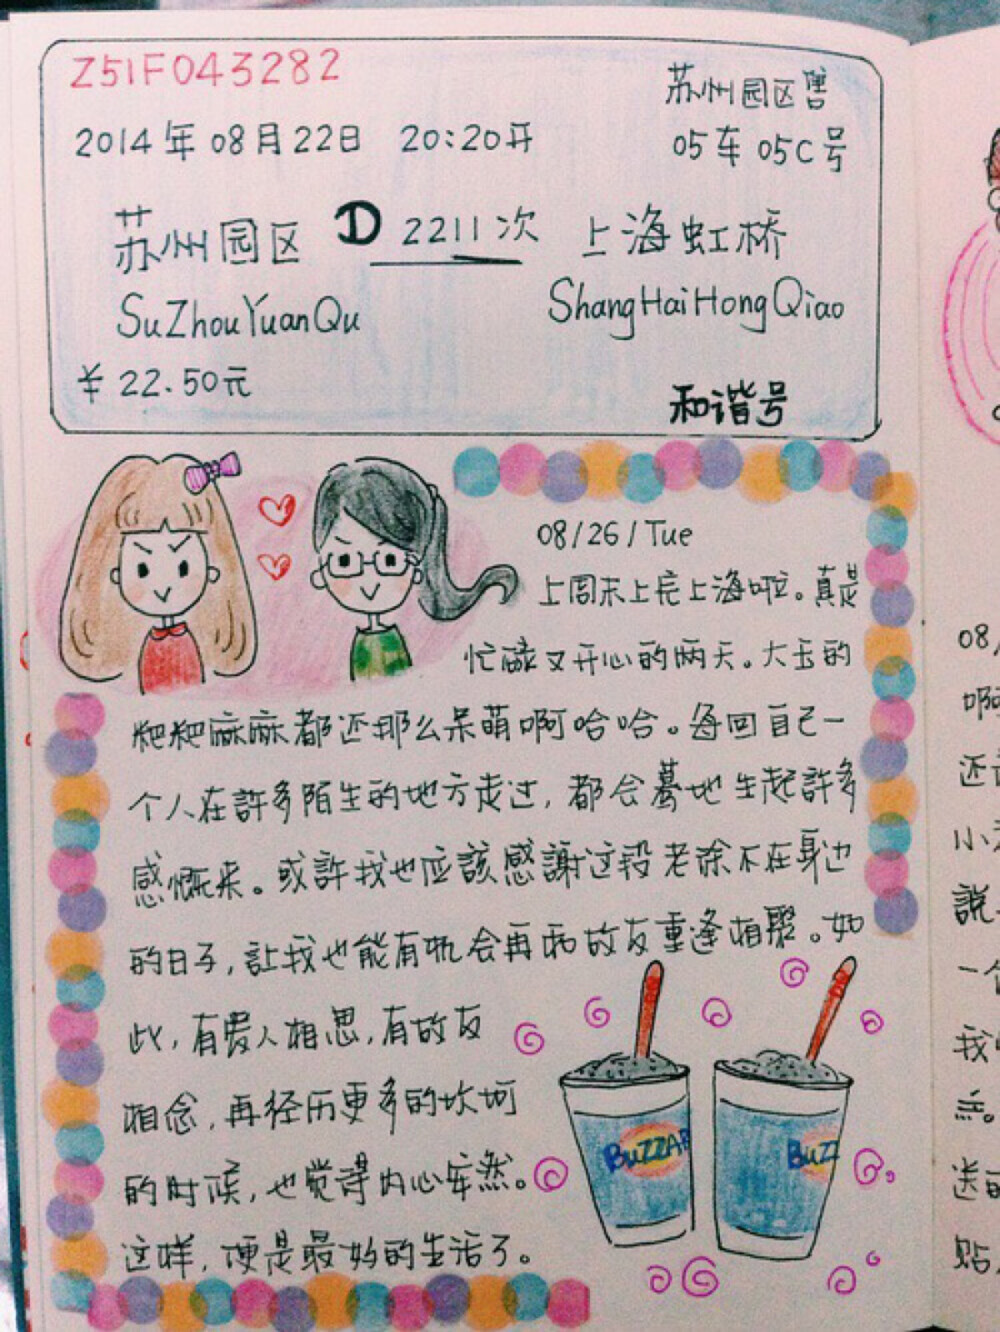 Z51F043282
苏州园区售
2014年08月22日 20:20开
05车05C号
苏州园区 D 2211次 上海虹桥
SuZhouYuanQu ShangHaiHongQiao
¥22.50元
和谐号
08/26/Tue
上周末上完上海啦。真是
忙碌又开心的两天。大玉的
粑粑麻麻都还那么呆萌啊哈哈。每回自己一
个人在許多陌生的地方走过，都会蓦地生起許多
感慨来。或許我也应該感謝这段老徐不在身边
的日子，让我也能有机会再和故友重逢相聚。如
此，有爱人相思，有故友
相念，再经历更多的坎坷
的时候，也觉得内心安然。
这样，便是最好的生活了。
BUZZAR
BUZZ
08/
啊
还
小
說
一
我
点。
送
贴